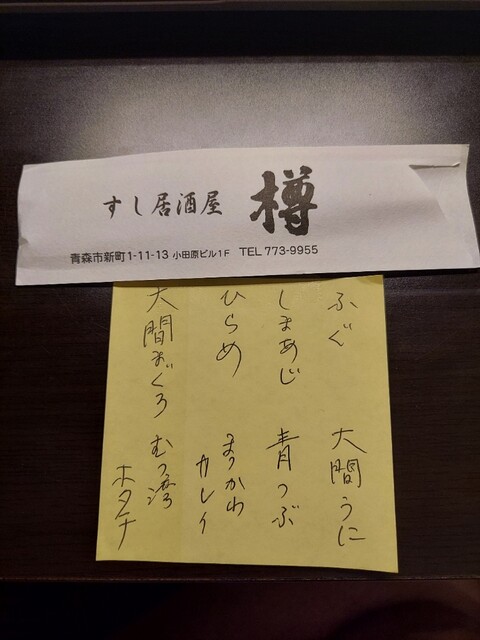 すし居酒屋 樽
青森市新町1-11-13 小田原ビル1F TEL 773-9955
ふぐ
しまあじ
ひらめ
大間まぐろ
大間うに
青つぶ
まつかわ
カレイ
むつ湾
ホタテ